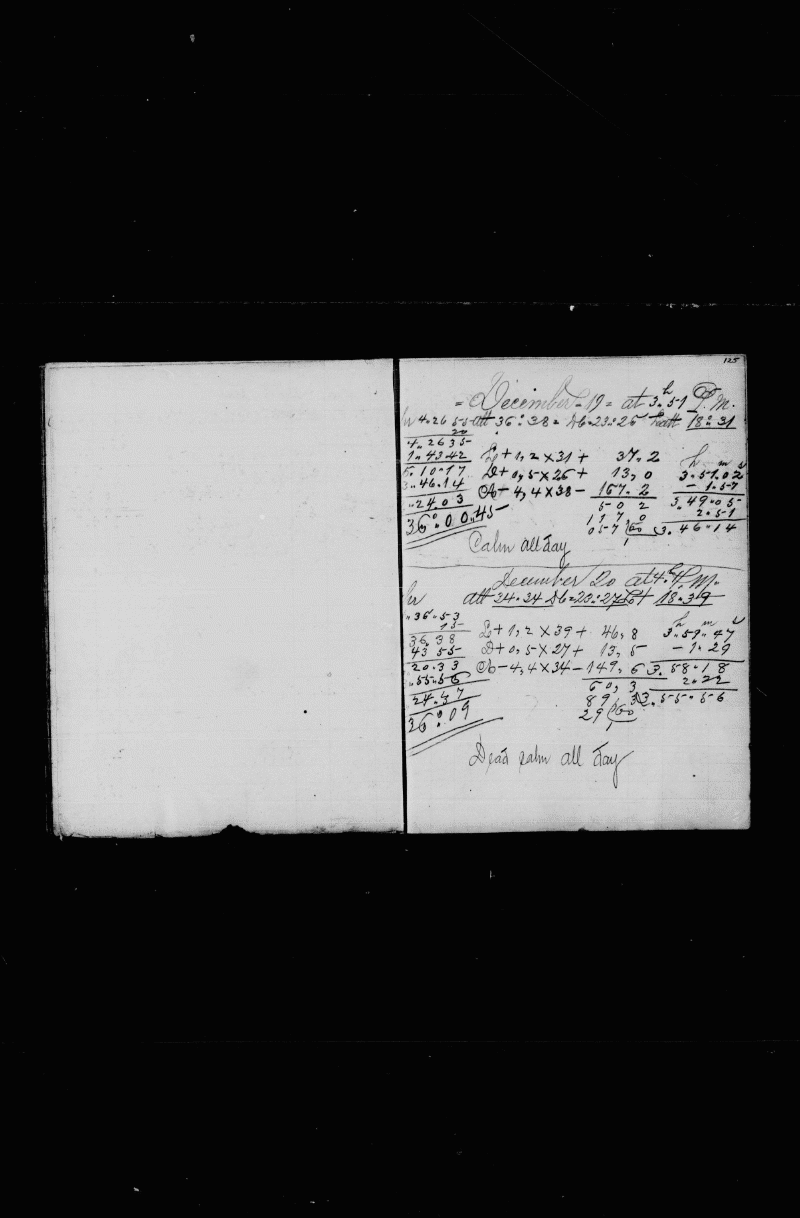 125
= December = 19 = at 3h.51 P.M.
hr 4.26 55 alt 36°.38 = Db.23:26 Lat 18°.31
20
4.26 35
1.43 42 L + 1,2 X 31 + 37.2 h m s
6.10.17 D + 0,5 X 26 + 13,0 3.51.02
3.46.14 A - 4,4 X 38 - 167.2 - 1.57
.24.03 50 2 3.49.05
36°.00.45 117 0 2.51
057 (60 3.46.14
1
Calm all day
December 20 at 4.h P.M.
hr alt 34.34 Db=23:27 Lat 18.39
.36.53
15
36.38 L + 1,2 X 39 + 46,8 3h.59m.47
43 55 D + 0,5 X 27 + 13,5 - 1.29
20.33 A - 4,4 X 34 - 149,6 3.58.18
.55.56 60,3 2.22
24.37 89,3 3.55.56
36°.09 29 (60
Dead calm all day